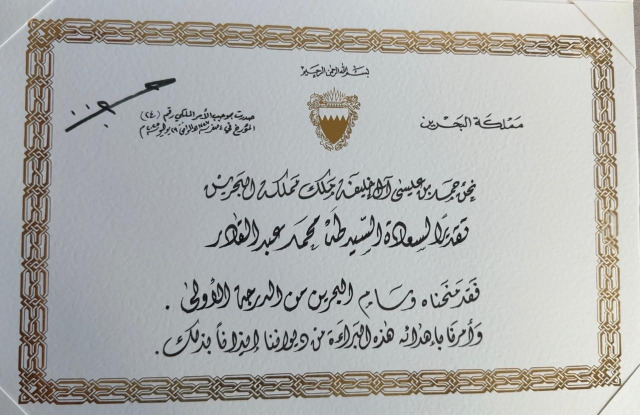 بسم الله الرحمن الرحيم
مملكة البحرين
صدرت بموجب الأمر الملكي رقم (٢٤)
المؤرخ في
نحن حمد بن عيسى آل خليفة ملك مملكة البحرين
تقديرًا لسعادة السيد طه محمد عبدالقادر
فقد منحناه وسام البحرين من الدرجة الأولى .
وأمرنا باهدائه هذه البراءة من ديواننا إيذاناً بذلك .